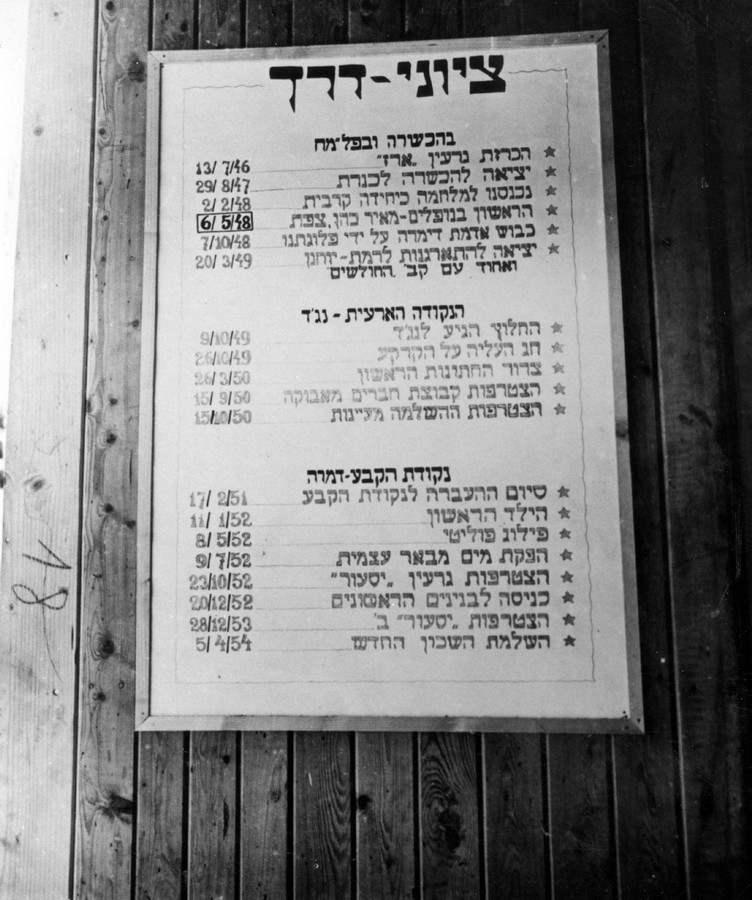 ציוני-דרך
בהכשרה ובפלי״מח
הכרזת גרעין „ארז״ 13/ 7/46
יציאה להכשרה לכנרת 29/ 8/47
נכנסנו למלחמה כיחידה קרבית 2/ 2/48
הראשון בנופלים-מאיר כהן, צפת 6/ 5/48
כבוש אדמת דימרה על ידי פלוגתנו 7/10/48
יציאה להתארגנות לרמת-יוחנן 20/ 3/49
ואחוד עם קב׳ החולשים
הנקודה הארעית - נג׳ד
החלוץ הגיע לנג׳ד 9/10/49
חג העליה על הקרקע 26/10/49
צרור החתונות הראשון 26/ 3/50
הצטרפות קבוצת חברים מאבוקה 15/ 9/50
הצטרפות ההשלמה מעינות 15/10/50
נקודת הקבע-דמרה
סיום ההעברה לנקודת הקבע 17/ 2/51
הילד הראשון 11/ 1/52
פילוג פוליטי 8/ 5/52
הפקת מים מבאר עצמית 9/ 7/52
הצטרפות גרעין „יסעור״ 23/10/52
כניסה לבנינים הראשונים 20/12/52
הצטרפות „יסעור״ ב׳ 28/12/53
השלמת השכון החדש 5/ 4/54